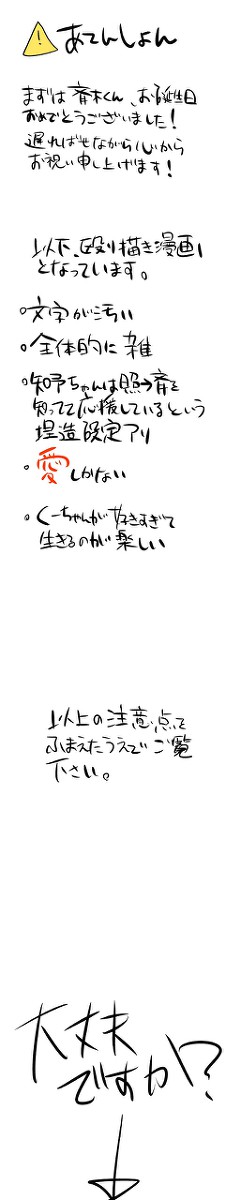 あてんしょん
まずは斉木くん、お誕生日
おめでとうございました!
遅ればせながら心から
お祝い申し上げます!
以下、殴り描き漫画
となっています。
。文字が汚い
。全体的に雑
。知予ちゃんは照→斉を
知ってて応援しているという
捏造設定アリ
・愛しかない
。くーちゃんが好きすぎて
生きるのが楽しい
以上の注意点を
ふまえたうえでご覧
下さい。
大丈夫
ですか?